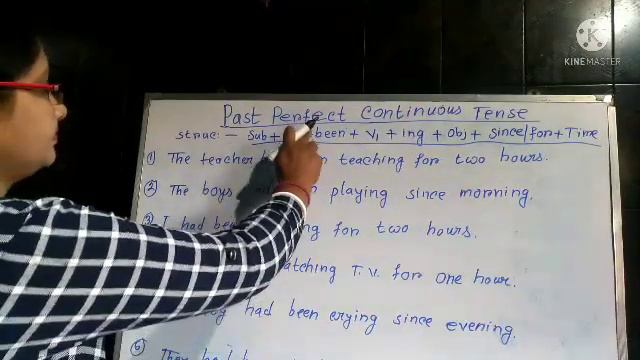 KINEMASTER
Past Perfect Continuous Tense
struc:- Sub+ been + V1 + ing + obj + since/for+Time
① The teacher teaching for two hours.
② The boys playing since morning.
③ I had been for two hours.
T.V. for one hour.
had been crying since evening.
⑥ They had